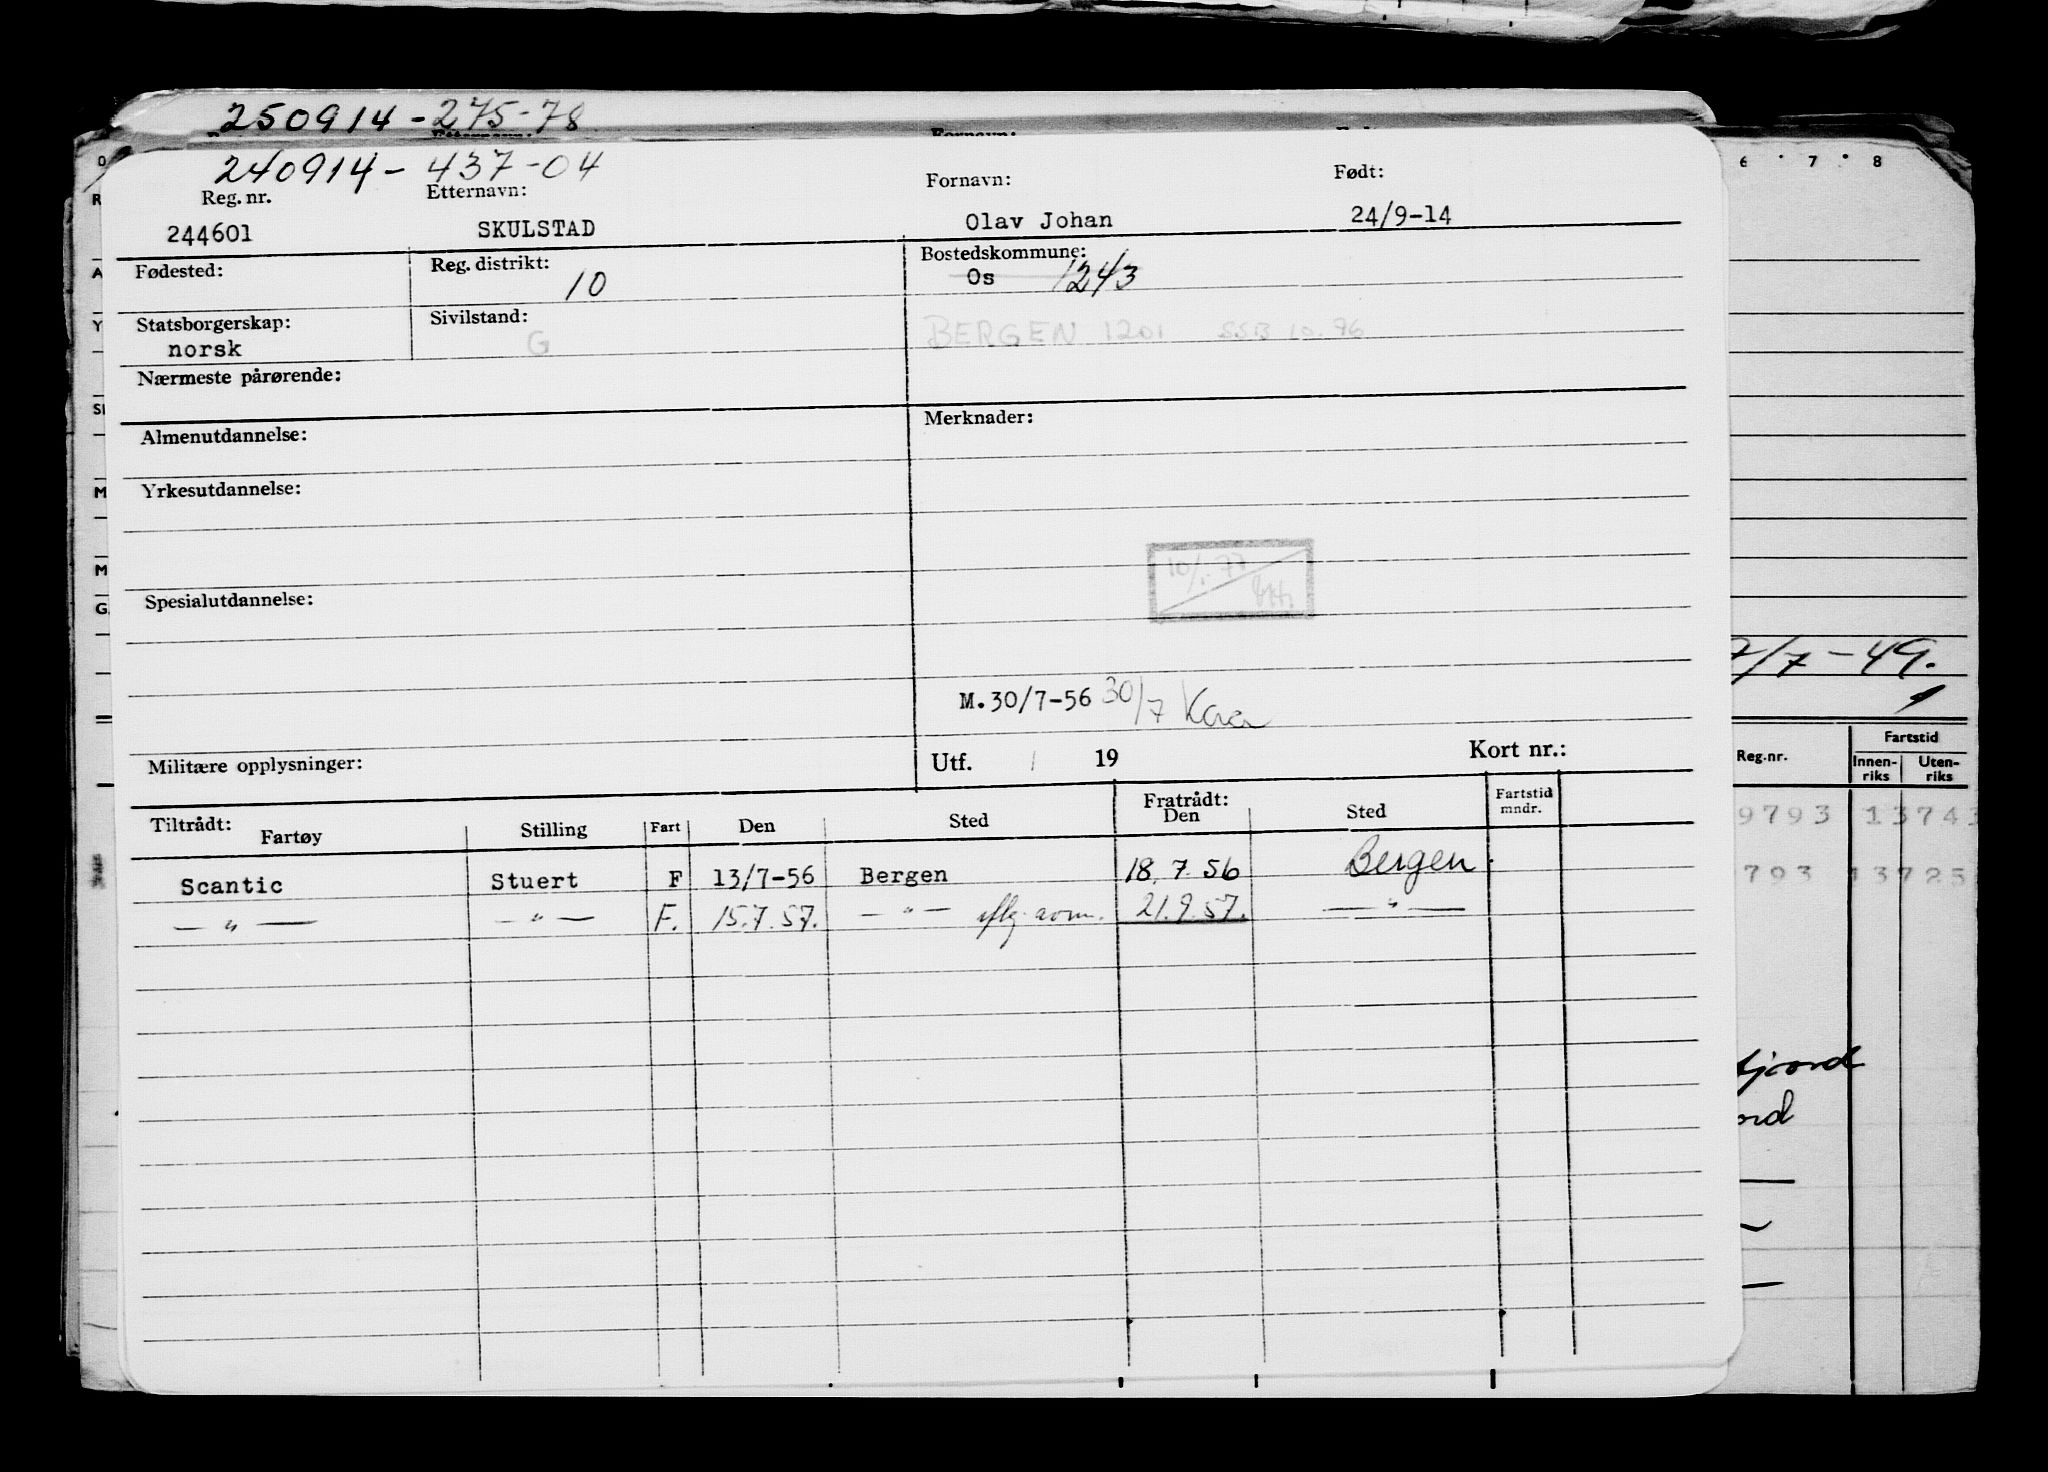 250914-275-78
240914-437-04
Reg. nr. Etternavn: Fornavn: Født:
244601 SKULSTAD Olav Johan 24/9-14
Fødested: Reg. distrikt: 10 Bostedskommune: Os 1243
Statsborgerskap: norsk Sivilstand: G BERGEN 1201 SSB 10.76
Nærmeste pårørende:
Almenutdannelse: Merknader:
Yrkesutdannelse:
10/1.77
Spesialutdannelse:
M.30/7-56 30/7
Militære opplysninger: Utf. / 19 Kort nr.:
Tiltrådt: Fratrådt:
Fartøy Stilling Fart Den Sted Den Sted Fartstid mndr.
Scantic Stuert F 13/7-56 Bergen 18.7.56 Bergen
— " — — " — F. 15.7.57. — " — 21.9.57. — " —
6 7 8
7/7-49.
Reg.nr. Fartstid
Innen-riks Uten-riks
9793 1374
793 13725
fjord
ord